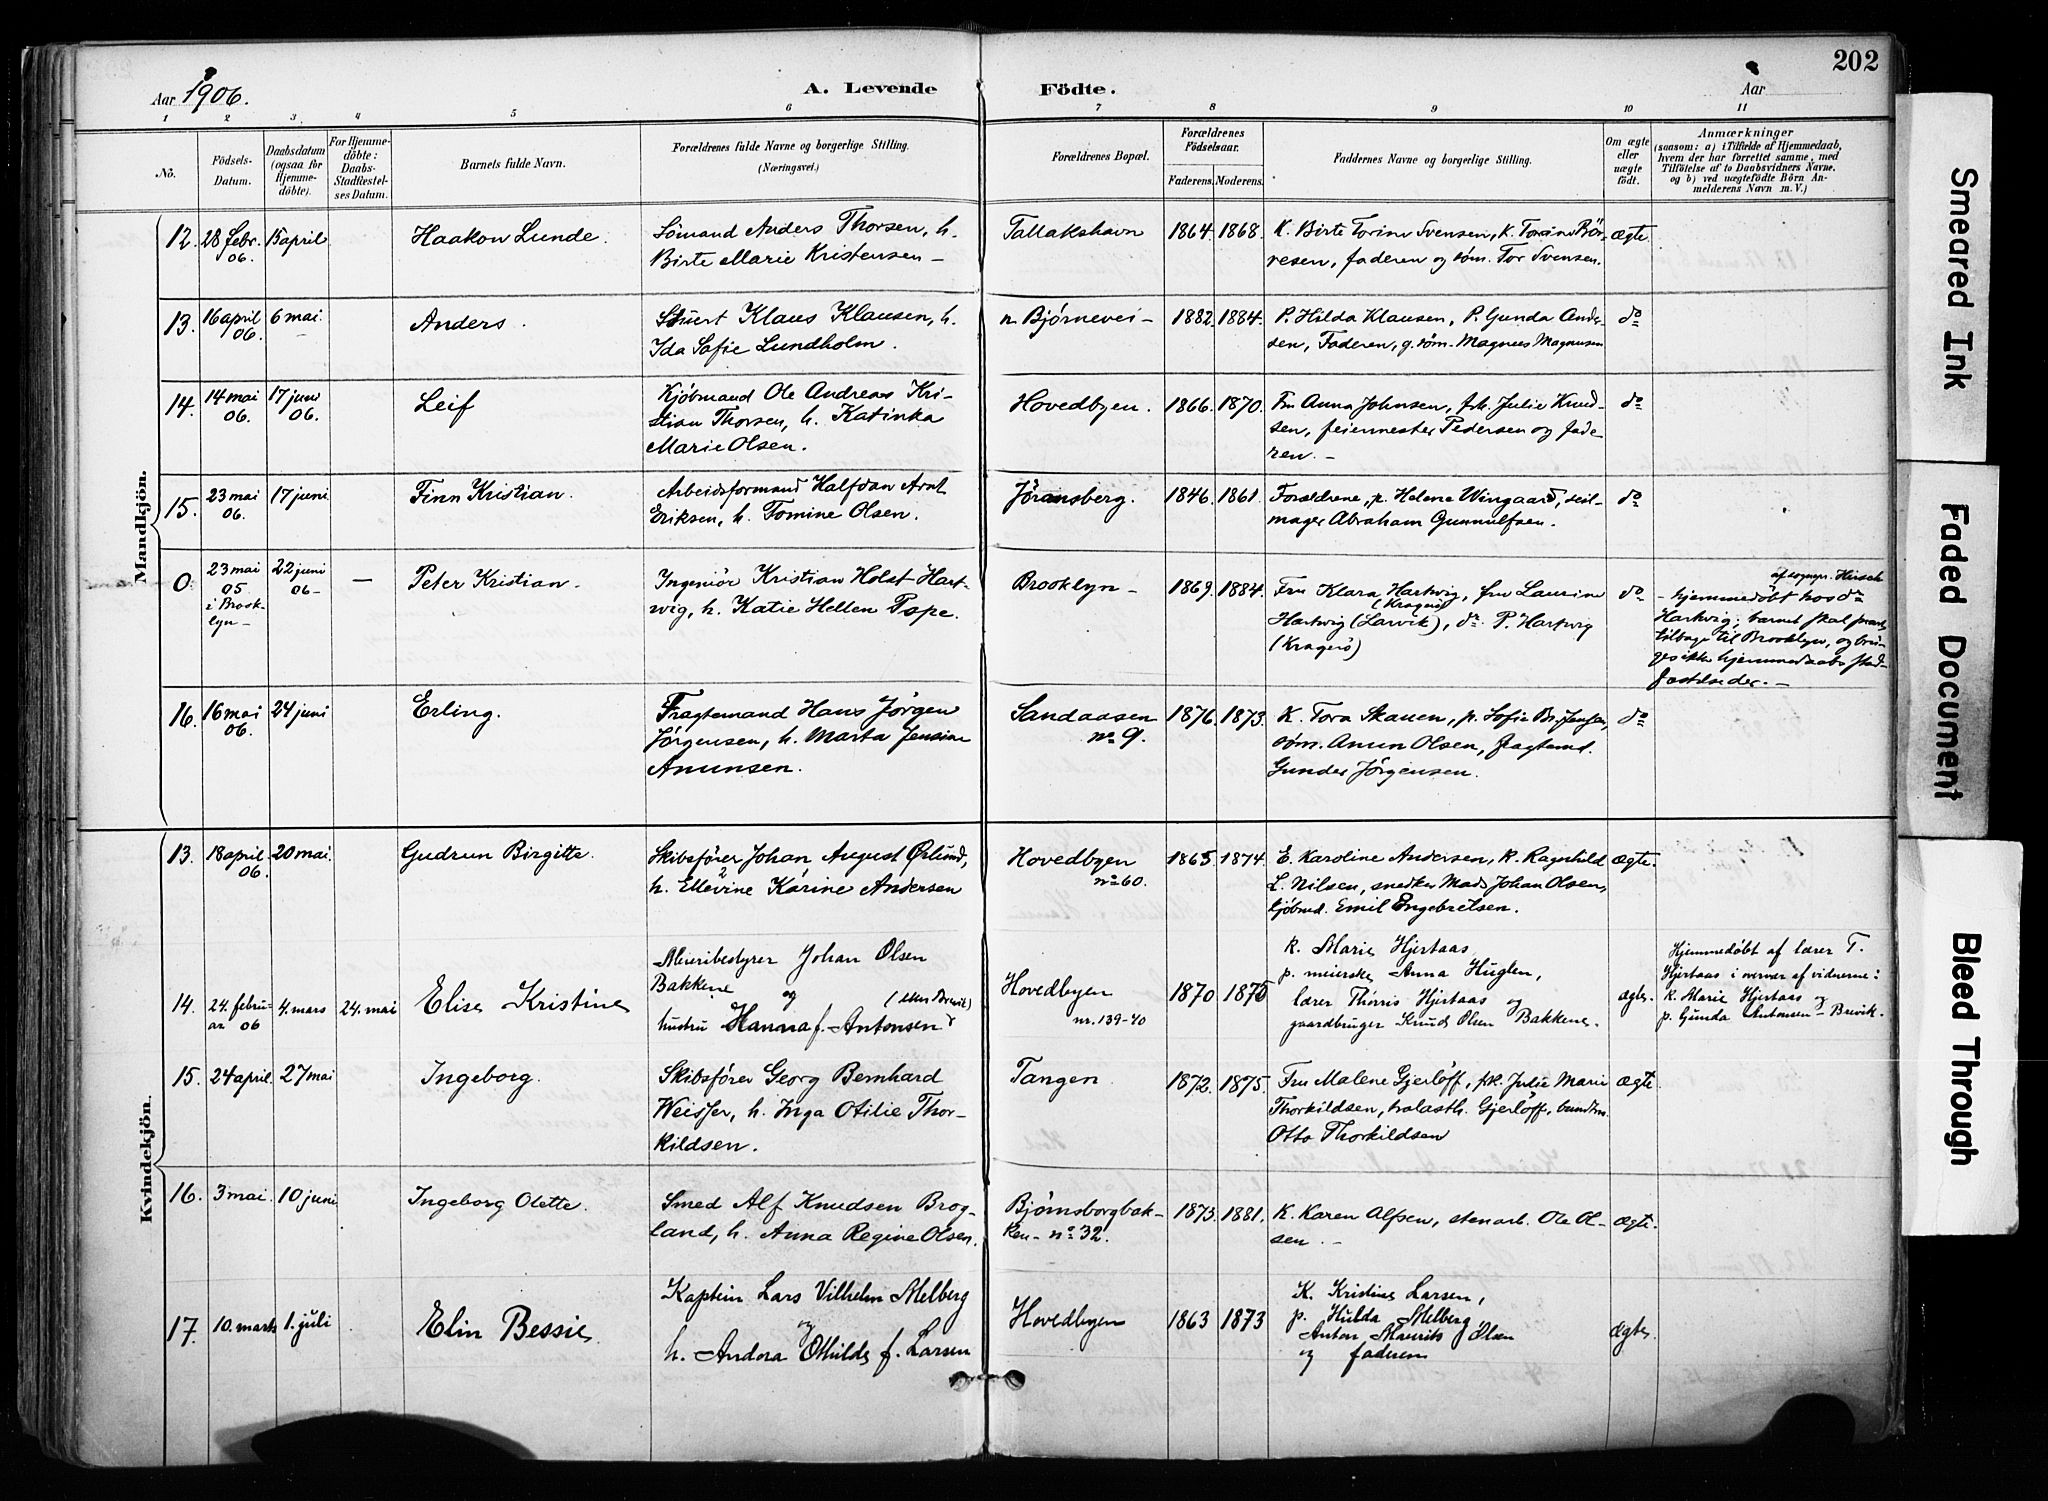 202
Aar 1906.
A. Levende Födte.
Aar
1 2 3 4 5 6 7 8 9 10 11
No.
Födsels-Datum.
Daabsdatum (ogsaa for Hjemmedöbte).
For Hjemmedöbte: Daabs-Stadfæstelses Datum.
Barnets fulde Navn.
Forældrenes fulde Navne og borgerlige Stilling.
(Næringsvei.)
Forældrenes Bopæl.
Forældrenes Födselsaar.
Faderens. Moderens.
Faddernes Navne og borgerlige Stilling.
Om ægte eller uægte födt.
Anmærkninger
(saasom: a) i Tilfælde af Hjemmedaab,
hvem der har forrettet samme, med
Tilföielse af to Daabsvidners Navne,
og b) ved uægtefödte Börn An-
melderens Navn m. V.)
Mandkjön.
12. 28 febr. 06. 15 april Haakon Lunde.
Sömand Anders Thorsen, h.
Birte Marie Kristensen –
Tallakshavn 1864. 1868.
K. Birte Torine Svensen, K.
vesen, faderen og söm. Tor Svensen.
ægte
13. 16 april 06. 6 mai. Anders.
Klaus Klausen, h.
Ida Sofie Lundholm.
n. Bjørnevei – 1882. 1884.
P. Hilda Klausen, P. Gunda Ander-
sen, Faderen, g. söm. Magnus Magnusen
do
14. 14 mai 06. 17 juni 06. Leif
Kjøbmand Ole Andreas Kri-
stian Thorsen, h. Katinka
Marie Olsen.
Hovedbyen. 1866. 1870.
Fru Anna Johnsen, frk. Julie Knud-
sen, feiermester Pedersen og fade
ren. –
do
15. 23 mai 06. 17 juni Finn Kristian.
Arbeidsformand Halfdan Arnt
Eriksen, h. Tomine Olsen.
Jøransberg. 1846. 1861.
Forældrene, p. Helene Wingaard, seil-
mager Abraham Gunnulfsen.
do
0 23 mai 05 i Brook-lyn – 22 juni 06 – — Peter Kristian.
Ingeniör Kristian Holst Hart-
wig, h. Katie Hellen Pope.
Brooklyn – 1869. 1884.
Fru Klara Hartwig, fru Laurine
(Kragerø)
Hartwig (Larvik), dr. P. Hartwig
(Kragerö)
do
af sognepr. Hirsch
– hjemmedøbt hos dr.
Hartwig; barnet skal
tilbage til Brooklyn, og
16. 16 mai 06. 24 juni Erling.
Fragtemand Hans Jørgen
Jørgensen, h. Marta Jensine
Anunsen.
Sandaasen no 9. 1876. 1873.
K. Tora Skauen, p. Sofie Br. Jensen,
söm. Anun Olsen, fragtemd.
Gunder Jørgensen.
do
Kvindekjön.
13. 18 april. 06. 20 mai. Gudrun Birgitte.
Skibsfører Johan August Ørlund,
h. Ellevine Karine Andersen
Hovedbyen no 60. 1865 1874.
E. Karoline Andersen, K. Ragnhild
L. Nilsen, snedker Mads Johan Olsen,
kjöbmd. Emil Engebretsen.
ægte.
14. 24. februar 06 4. mars 24. mai Elise Kristine
Meieribestyrer Johan Olsen
Bakkene og
hustru Hanna f. Antonsen
Hovedbyen nr. 139-40 1870 1875
k. Marie Hjertaas
p. meierske Anna Huglen,
lærer Thorris Hjertaas og
gaardbruger Knud Olsen Bakkene.
ægte.
Hjemmedøbt af lærer T.
Hjertaas i overvær af vidnerne:
k. Marie Hjertaas og
p. Gunda Antonsen – Brevik.
15. 24 april. 27 mai Ingeborg.
Skibsfører Georg Bernhard
Weisser, h. Inga Otilie Thor-
kildsen.
Tangen. 1872. 1875.
Fru Malene Gjerløff, frk. Julie Marie
Thorkildsen, Gjerløff,
Otto Thorkildsen
ægte
16. 3 mai. 10 juni Ingeborg Olette.
Smed Alf Knudsen Brog-
land, h. Anna Regine Olsen.
Bjørnsborgbak-
ken – no 32. 1873. 1881.
K. Karen Alfsen, stenarb. Ole Ol-
sen. –
ægte.
17. 10. marts 1. juli Elin Bessie.
Kaptein Lars Vilhelm Melberg
og
h. Andora Othilde f. Larsen
Hovedbyen 1863 1873
K. Kristine Larsen,
p. Hulda Melberg
Anton Maurits Olsen
og faderen
ægte.
Smeared Ink
Faded Document
Bleed Through